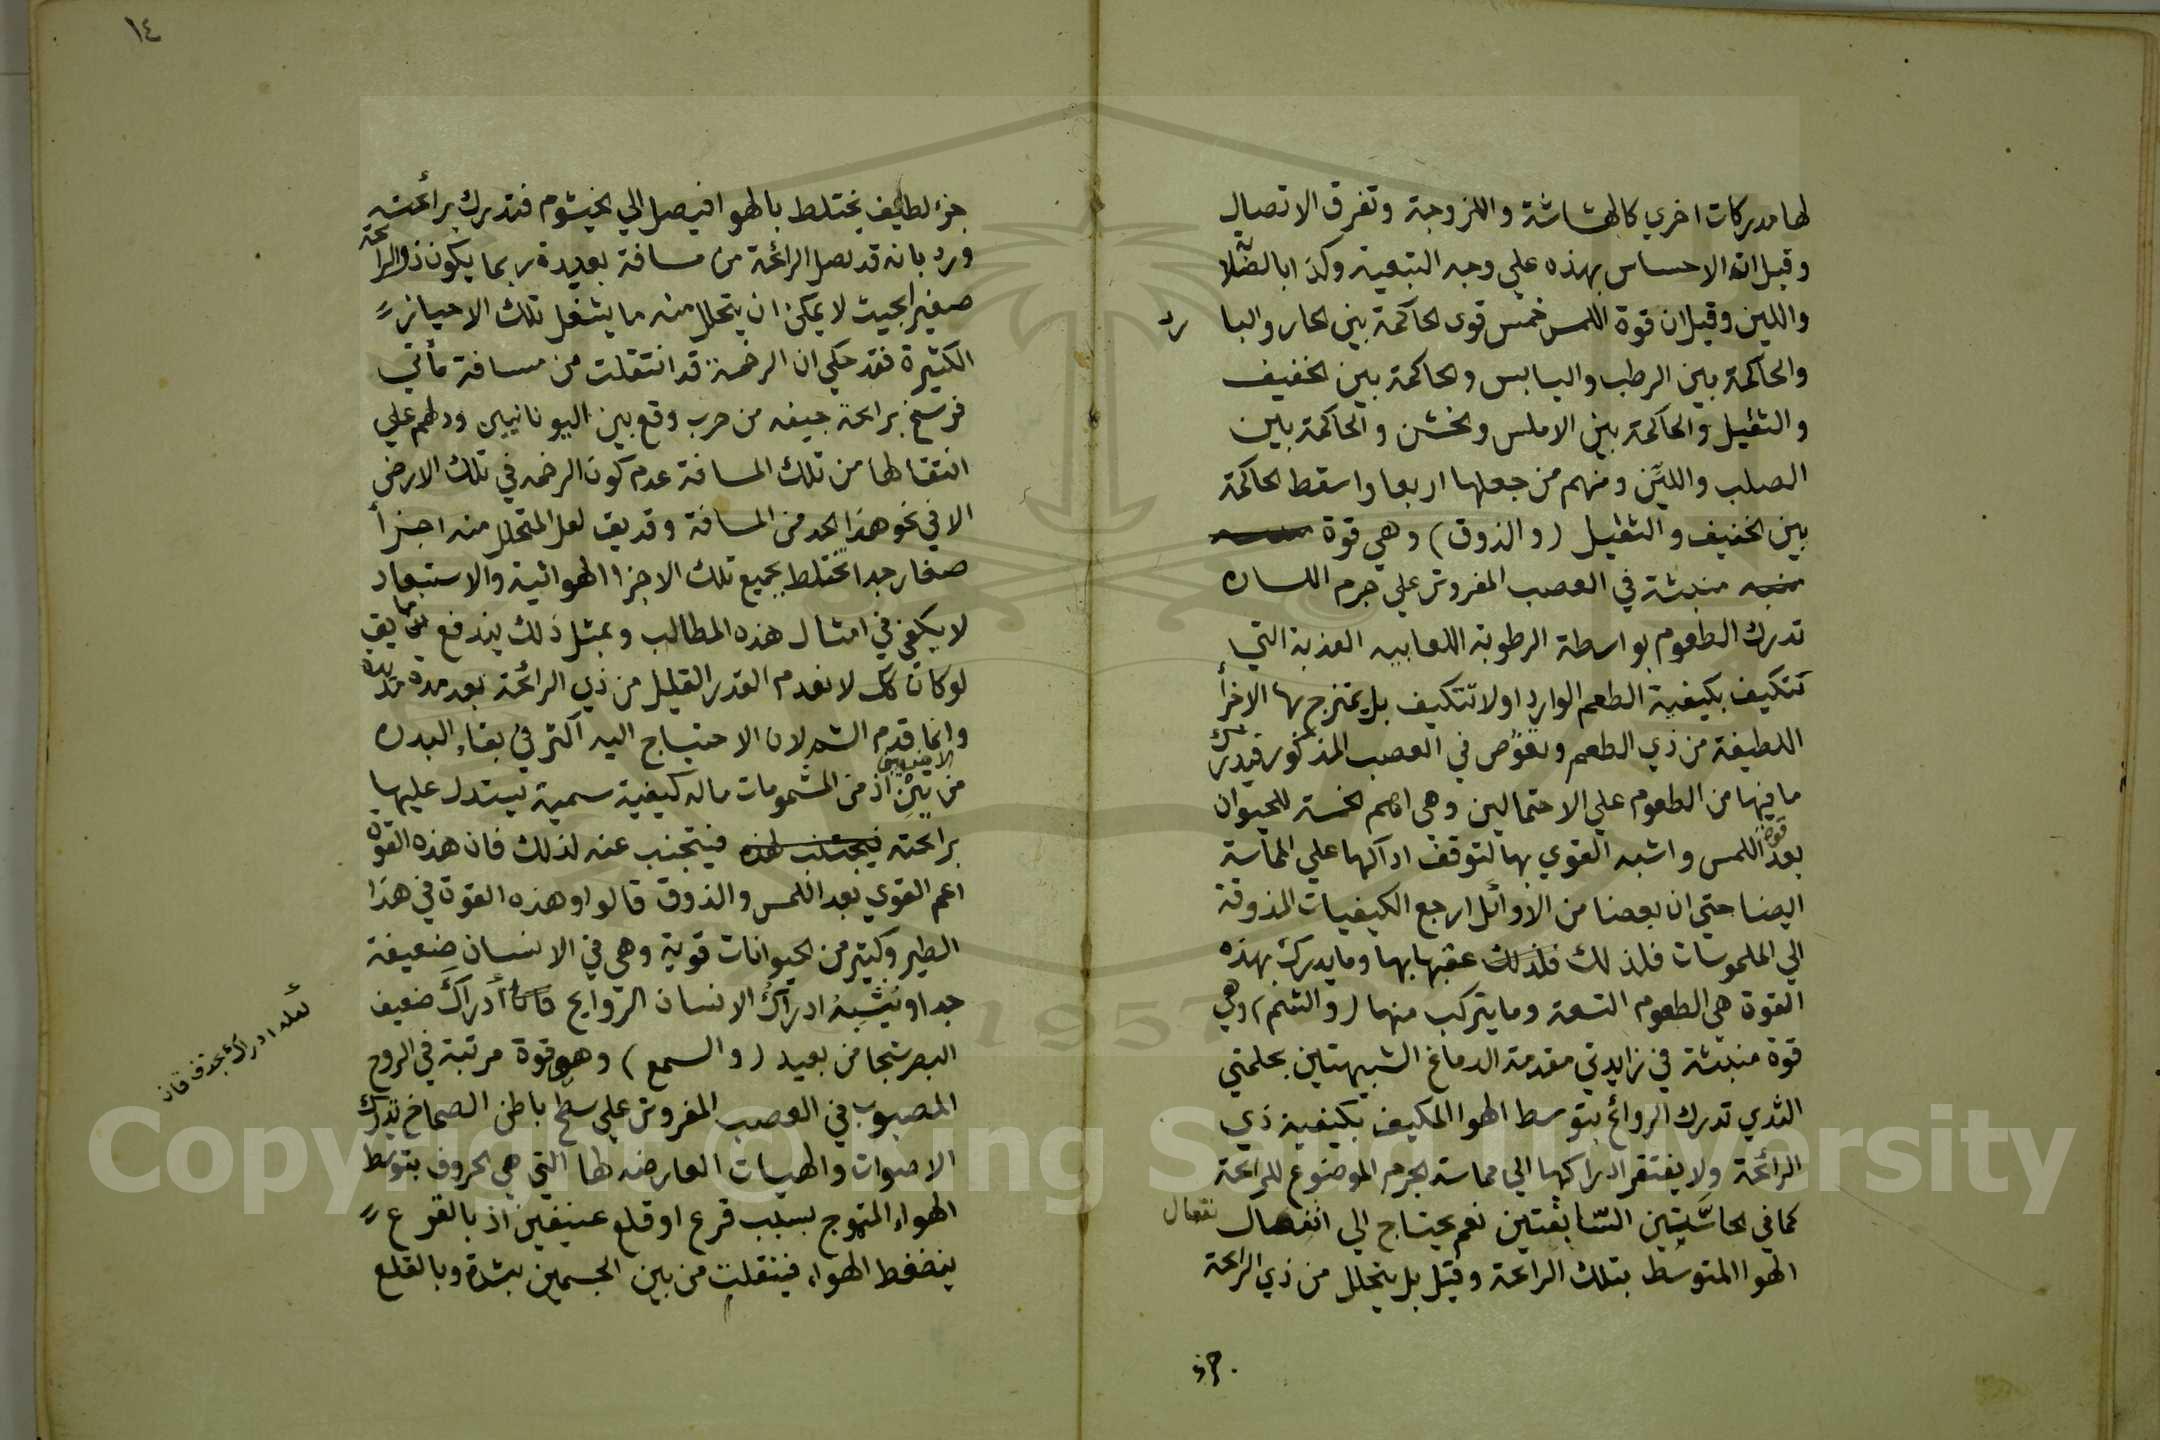 لها مدركات اخري كالهشاشة واللزوجة وتفرق الاتصال
وقيل انه الاحساس بهذه علي وجه التبعية وكذا بالصلا
واللين وقيل ان قوة اللمس خمس قوى الحاكمة بين الحار والبا رد
والحاكمة بين الرطب واليابس والحاكمة بين الخفيف
والثقيل والحاكمة بين الاملس والخشن والحاكمة بين
الصلب واللين ومنهم من جعلها اربعا واسقط الحاكمة
بين الخفيف والثقيل (والذوق) وهي قوة
منبثة في العصب المفروش علي جرم اللسان
تدرك الطعوم بواسطة الرطوبة اللعابيه العذبة التي
تتكيف بكيفية الطعم الوارد اولا تتكيف بل يمتزج بها الاجزأ
اللطيفة من ذي الطعم وتغوص في العصب المذكور فيدرك
ما فيها من الطعوم علي الاحتمالين وهي اهم الخمسة للحيوان
بعد قوة اللمس واشبه القوي بها لتوقف ادراكها علي المماسة
ايضا حتي ان بعضا من الاوائل ارجع الكيفيات المذوقة
الي الملموسات فلذلك فلذلك عقبها بها وما يدرك بهذه
القوة هي الطعوم التسعة وما يتركب منها (والشم) وهي
قوة منبثة في زايدتي مقدمة الدماغ الشبيهتين بحلمتي
الثدي تدرك الروائح بتوسط الهوا المكيف بكيفية ذي
الرائحة ولا يفتقر ادراكها الي مماسة الجرم الموضوع للرائحة
كما في الحاستين السابقتين نعم يحتاج الي انفعال نفعال
الهوا المتوسط بتلك الرائحة وقيل بل يتحلل من ذي الرائحة
جزؤ
١٤
جزء لطيف يختلط بالهوا فيصل الي الخيشوم فتدرك برائحته
ورد بانه قد تصل الرائحة من مسافة بعيدة ربما يكون ذو الرائحة
صغيرا بحيث لا يمكن ان يتحلل منه ما يشغل تلك الاحياز
الكثيرة فقد حكي ان الرخمة قد انتقلت من مسافة مأتي
فرسخ برائحة جيفه من حرب وقع بين اليونانيين ودلهم علي
انتقالها من تلك المسافة عدم كون الرخمه في تلك الارض
الا في نحو هذا الحد من المسافة وقد يق لعل المتحلل منه اجزأ
صغار جدا تختلط بجميع تلك الاجزا الهوائية والاستبعاد
لا يكفي في امثال هذه المطالب وبمثل ذلك يندفع ما يق
لو كان كك لانعدم القدر القليل من ذي الرائحة بعد مدة مديدة
وانما قدم الشم لان الاحتياج اليه اكثر في بقاء البدن
من بين الاخيرين اذ من المشمومات ما له كيفية سمية يستدل عليها
برائحته فيجتنب لهذه فيتجنب عنه لذلك فان هذه القوة
اعم القوي بعد اللمس والذوق قالوا وهذه القوة في هذا
الطير وكثير من الحيوانات قوية وهي في الانسان ضعيفة
جدا ويشبه ادراك الانسان الروايح فان ادراك ضعيف
لعله ادراك بحذف فان
البصر شبحا من بعيد (والسمع) وهي قوة مرتبة في الروح
المصبوب في العصب المفروش علي سطح باطن الصماخ تدرك
الاصوات والهيات العارضه لها التي هي الحروف بتوسط
الهواء المتموج بسبب قرع او قلع عنيفين اذ بالقرع
ينضغط الهواء فينفلت من بين الجسمين بشدة وبالقلع
Copyright © King Saud University
1957